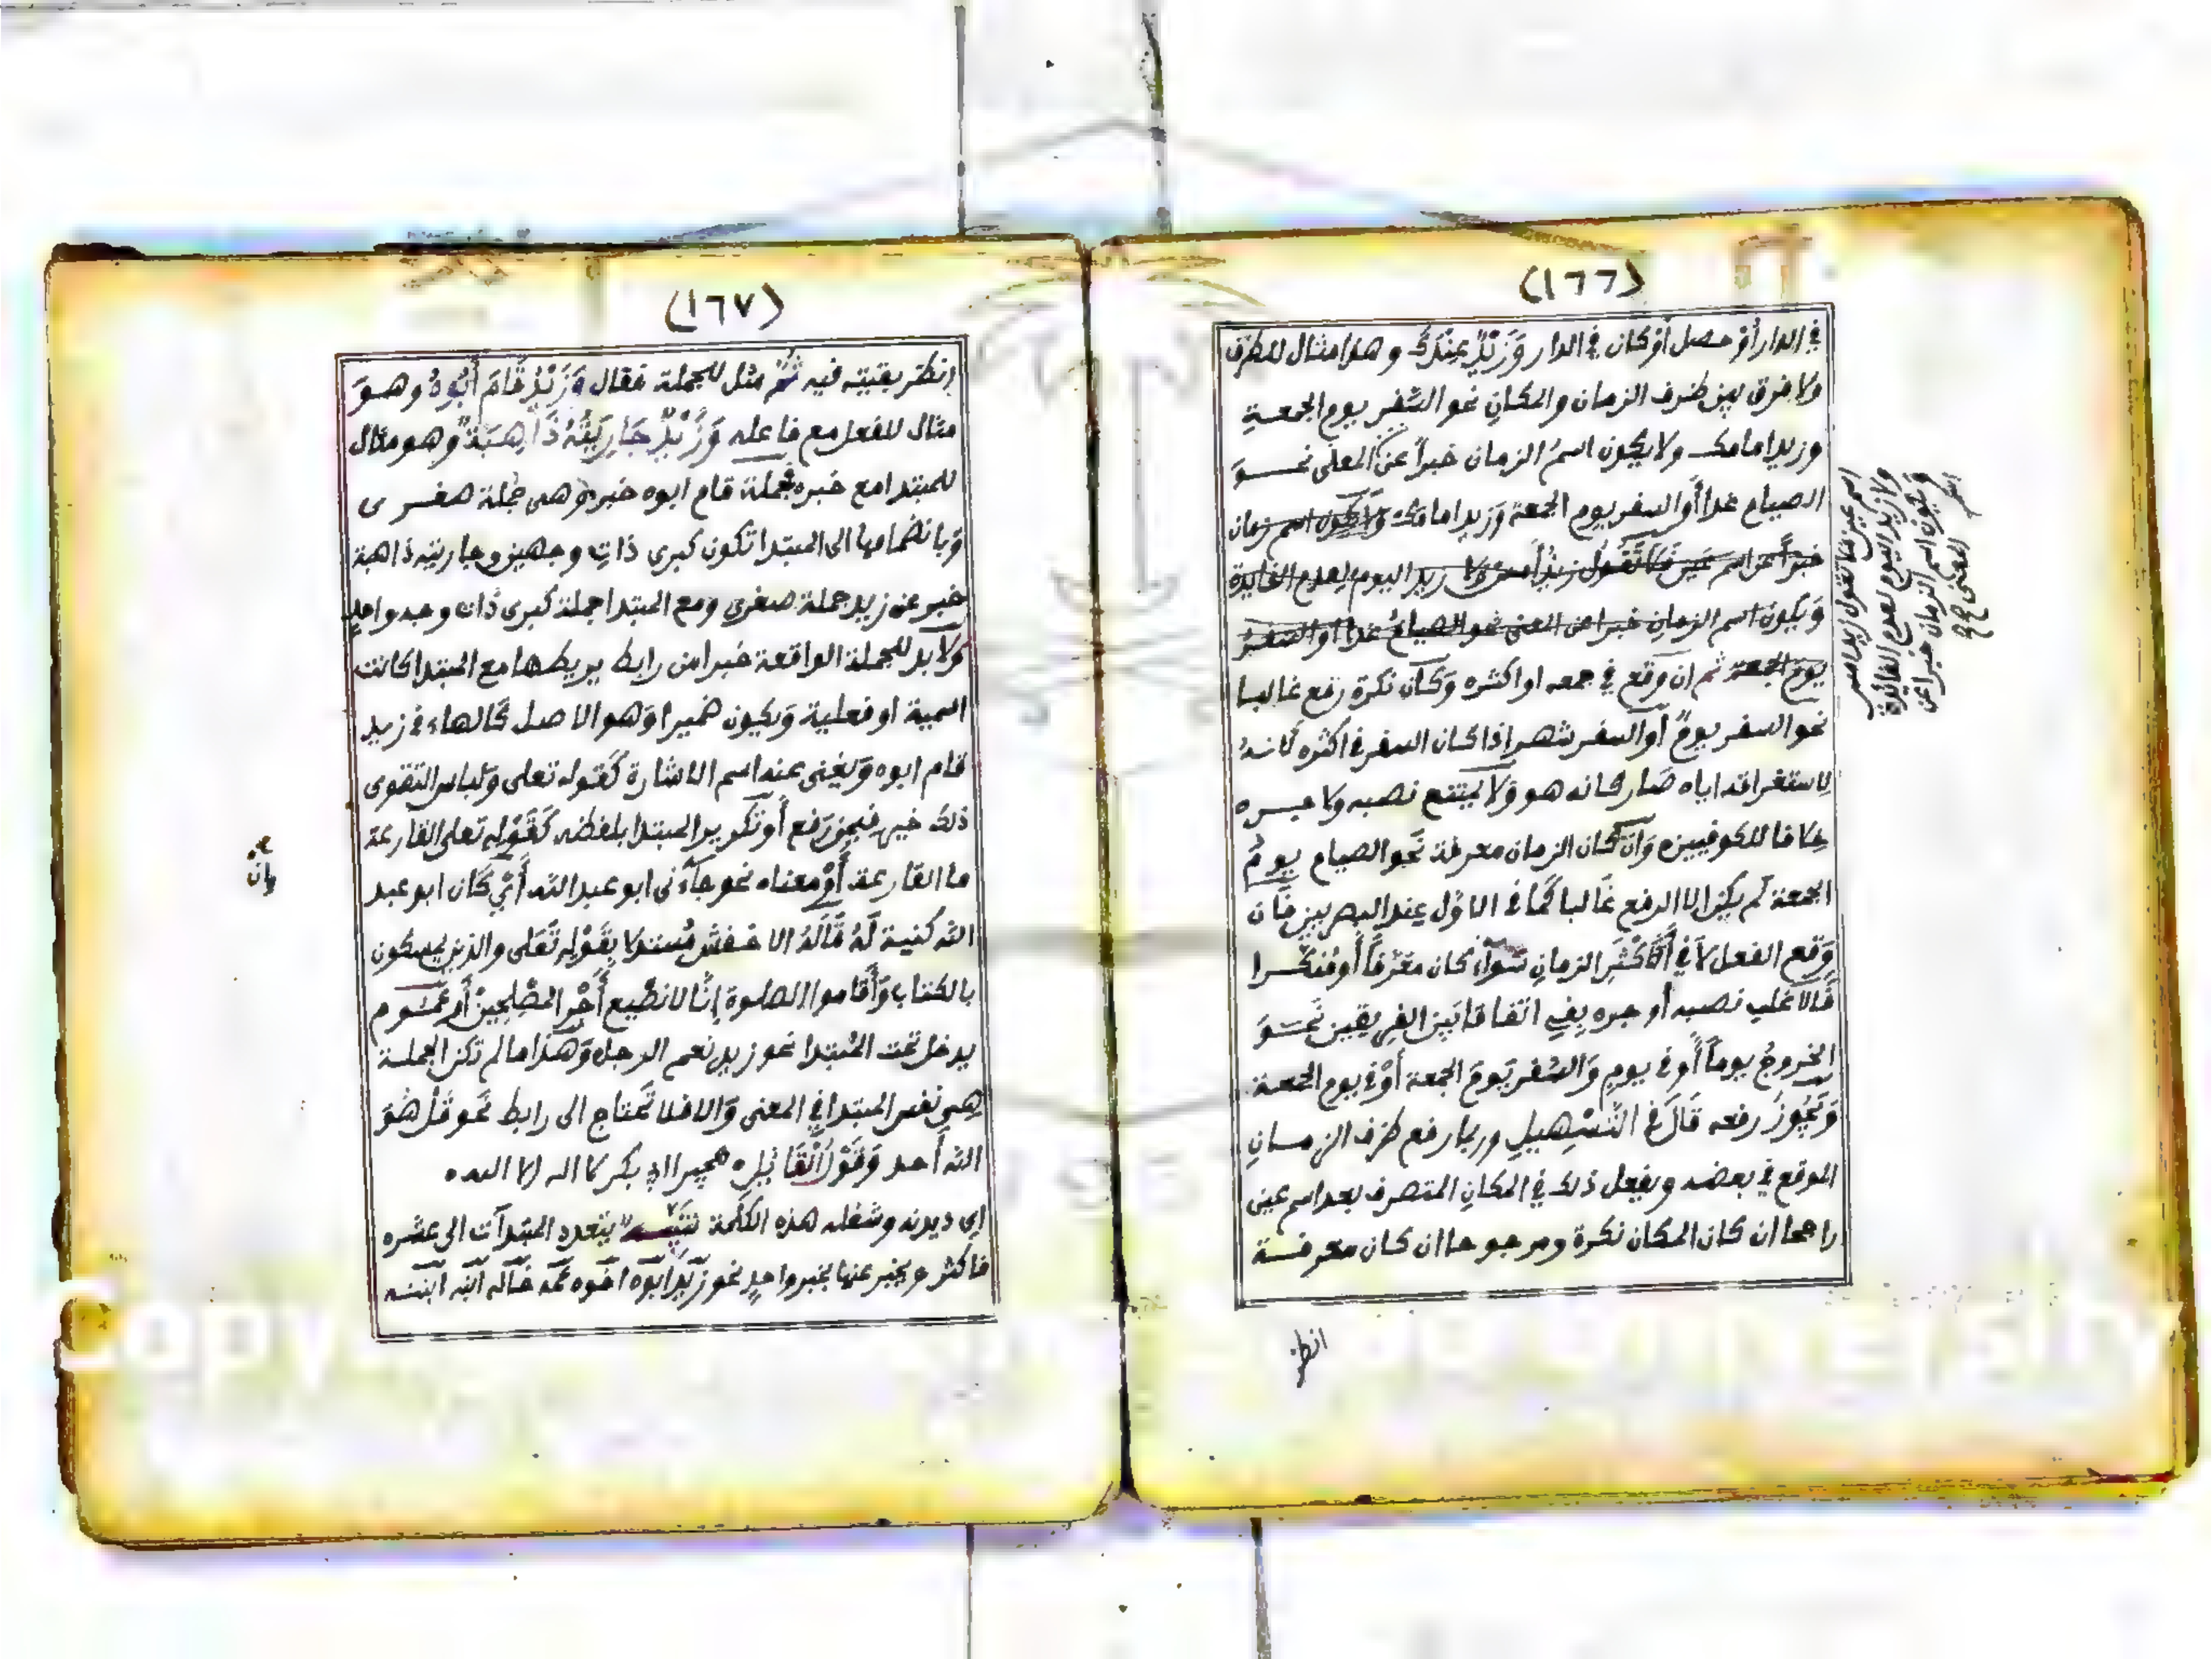 (١٦٦)
في الدار أوْ حصل أوْ كان في الدار وَزَيْدٌ عِنْدَكَ وهذا مثال للظرف
ولا فرق بين ظرف الزمان والمكانِ نحو السَّفر يوم الجمعةِ
وزيد امامك ولا يكون اسمُ الزمان خبراً عن المعنى نحوَ
الصيام غدا أو السفر يوم الجمعة وَزيد امامك وَلا يكون اسم زمان
خبراً عن اسم عين فَلا تَقُولُ زيْدٌ أمس ولا زيد اليوم لعدم الفايدة
وَيكون اسم الزمانِ خبرا عن المعنى نحو الصيامُ غداً أو السفرُ
يومَ الجمعة ثم ان وَقع في جمعه او اكثره وَكان نكرة رفع غالبا
نحو السفر يومٌ أو السفر شهر اذا كان السفر في اكثره لانهُ
لِاستغراقه اياه صَار كانه هو وَلا يمتنع نصبه ولا جره
خلافا للكوفيين وَان كان الزمان معرفة نَحو الصيام يومُ
الجمعة لم يكن الا الرفع غَالبا كَما في الاوّل عِند البصريين فَان
وَقع الفعل لَا في أَكْثَرِ الزمانِ سَوَآء كان معَرّفاً أو مُنكَّرا
فَالاَغلب نصبه أو جره بِفي اتفاقا بَين الفريقين نَحوَ
الخروجُ يوماً أو في يومٍ وَالسَّفر يَومَ الجمعة أوْ في يوم الجمعة
وَيَجُوزُ رفعه قَالَ في التَّسْهِيلِ وربما رفع ظرف الزمانِ
الموقع في بعضه ويفعل ذلك في المكانِ المتصرف بعد اسم عين
راجحا ان كان المكان نكرة ومرجوحا ان كان معرفة
انظر
اسم عين فلا تقول زيد امس
ولا زيد اليوم لعدم الفائدة
ويكون اسم الزمان خبرا عن
المعنى صح
(١٦٧)
اِنظر بقيته فيه ثُمَّ مثل للجملة فقال وَزَيْدٌ قَامَ أَبُوهُ وهوَ
مثال للفعل مع فاعله وَزَيْدٌ جَارِيَتُهُ ذَاهِبَةٌ وهو مثال
للمبتدا مع خبره فجملة قام ابوه خبر وَهى جُملة صغرى
وَبانضمامها الى المبتدا تكون كبرى ذاتِ وجهين وجاريته ذاهبة
خبر عن زيد جملة صغرى وَمع المبتدا جملة كبرى ذات وجه واحدٍ
وَلا بد للجملة الواقعة خبرا من رابط يربطها مع المبتدا كانت
اسمية او فعلية وَيكون ضميرا وَهو الاصل كالهاء في زيد
قام ابوه وَيغنى عنه اسم الاشارة كَقوله تعلى وَلباس التقوى
ذلك خير فيمن رَفع أو تكرير المبتدا بلفظه كَقَوْلِه تعلى القارعة
ما القارعة أَوْ معناه نحو جَآءنى ابو عبد الله أَيْ كَان ابو عبد
الله كنية لَهُ قَالَهُ الاخفش مُستدلا بِقَوْلِه تَعَلى والذين يمسكون
بالكتاب وَأَقاموا الصلوة إنَّا لا نضِيع أَجْرَ المصْلِحِينْ أو عمُوم
يدخل تحت المُبتدا نحو زيد نعم الرجل وَهَذا ما لم تكن الجملة
هى نفس المبتدا في المعنى وَالا فلا تَحتاج الى رابط نَحو قُلْ هُوَ
الله أحد وَقَوْلُ الْقَائِل ه هجير ابى بكر لا اله الا الله ه
اى ديدنه وشغله هذه الكَلمة تنبيه يتعدد المبتدآت الى عشره
فاكثر ويخبر عنها بخبر واحدٍ نحو زَيد ابوه اخوه عمه خاله ابنه ابنته